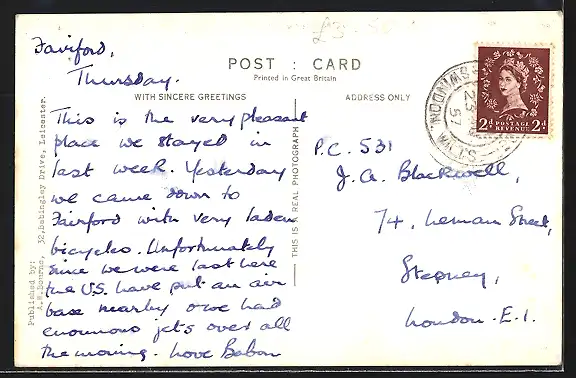 £3.50
Fairford,
Thursday.
POST : CARD
Printed in Great Britain
WITH SINCERE GREETINGS
ADDRESS ONLY
This is the very pleasant
place we stayed in
last week. Yesterday
we came down to
Fairford with very laden
bicycles. Unfortunately
since we were last here
the U.S. have put an air
base nearby & we had
enormous jets over all
the morning. Love Babon
THIS IS A REAL PHOTOGRAPH
Published by:
A.W.Bourne, 32,Babingley Drive, Leicester.
P.C. 531
J.A. Blackwell,
74, Leman Street,
Stepney,
London. E.1.
SWINDON
23
57
WILTS
2d POSTAGE 2d
REVENUE